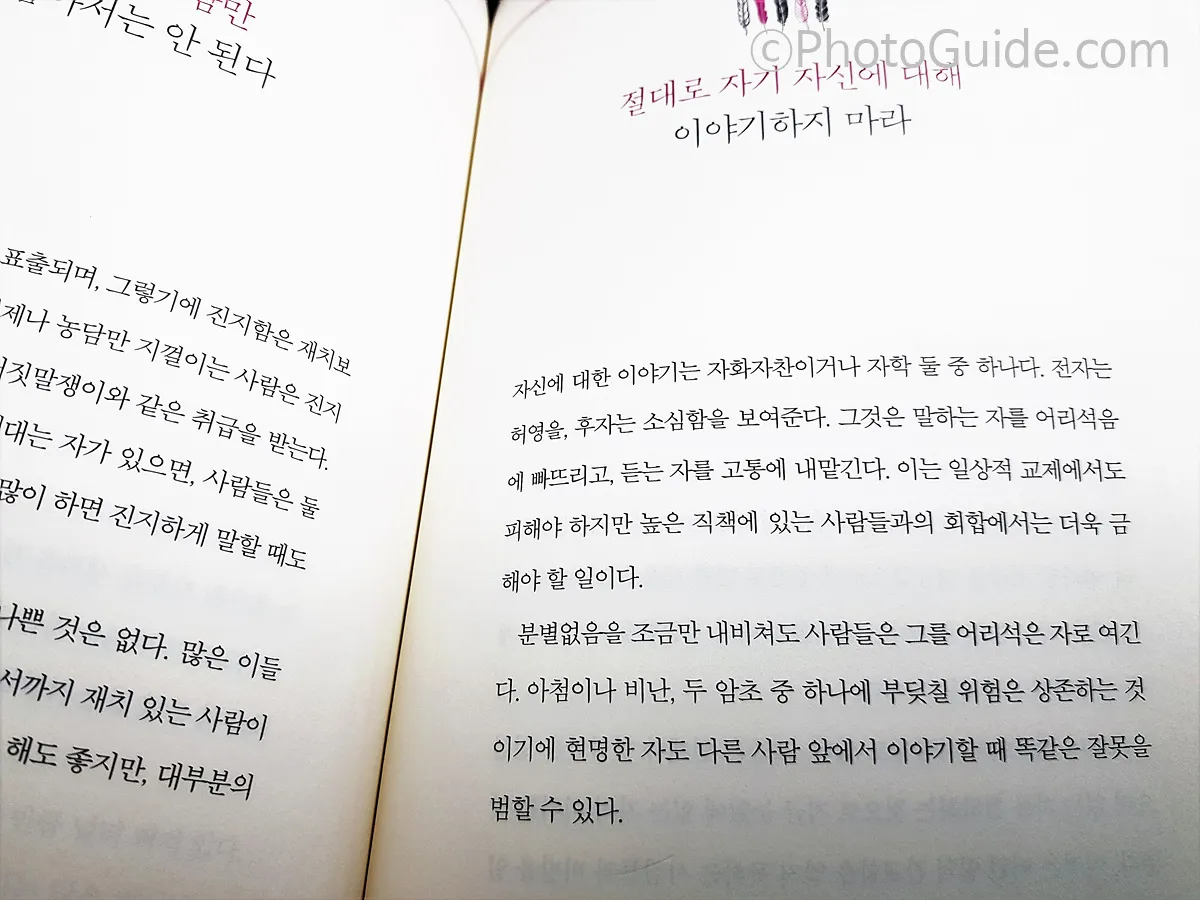 안 된다
표출되며, 그렇기에 진지함은 재치보
농담만 지껄이는 사람은 진지
같은 취급을 받는다.
자가 있으면, 사람들은 둘
많이 하면 진지하게 말할 때도
것은 없다. 많은 이들
재치 있는 사람이
해도 좋지만, 대부분의
©PhotoGuide.com
절대로 자기 자신에 대해
이야기하지 마라
자신에 대한 이야기는 자화자찬이거나 자학 둘 중 하나다. 전자는
허영을, 후자는 소심함을 보여준다. 그것은 말하는 자를 어리석음
에 빠뜨리고, 듣는 자를 고통에 내맡긴다. 이는 일상적 교제에서도
피해야 하지만 높은 직책에 있는 사람들과의 회합에서는 더욱 금
해야 할 일이다.
분별없음을 조금만 내비쳐도 사람들은 그를 어리석은 자로 여긴
다. 아첨이나 비난, 두 암초 중 하나에 부딪칠 위험은 상존하는 것
이기에 현명한 자도 다른 사람 앞에서 이야기할 때 똑같은 잘못을
범할 수 있다.